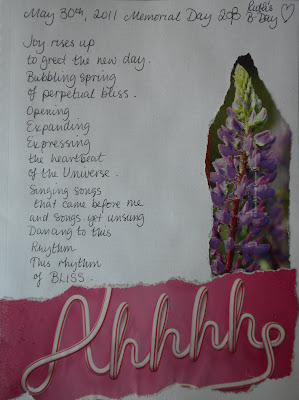 May 30th, 2011 Memorial Day
B-Day
Joy rises up
to greet the new day.
Bubbling spring
of perpetual bliss.
Opening
Expanding
Expressing
the heartbeat
of the Universe.
Singing songs
that came before me
and songs yet unsung
Dancing to this
Rhythm
This rhythm
of BLISS.
Ahhhhh